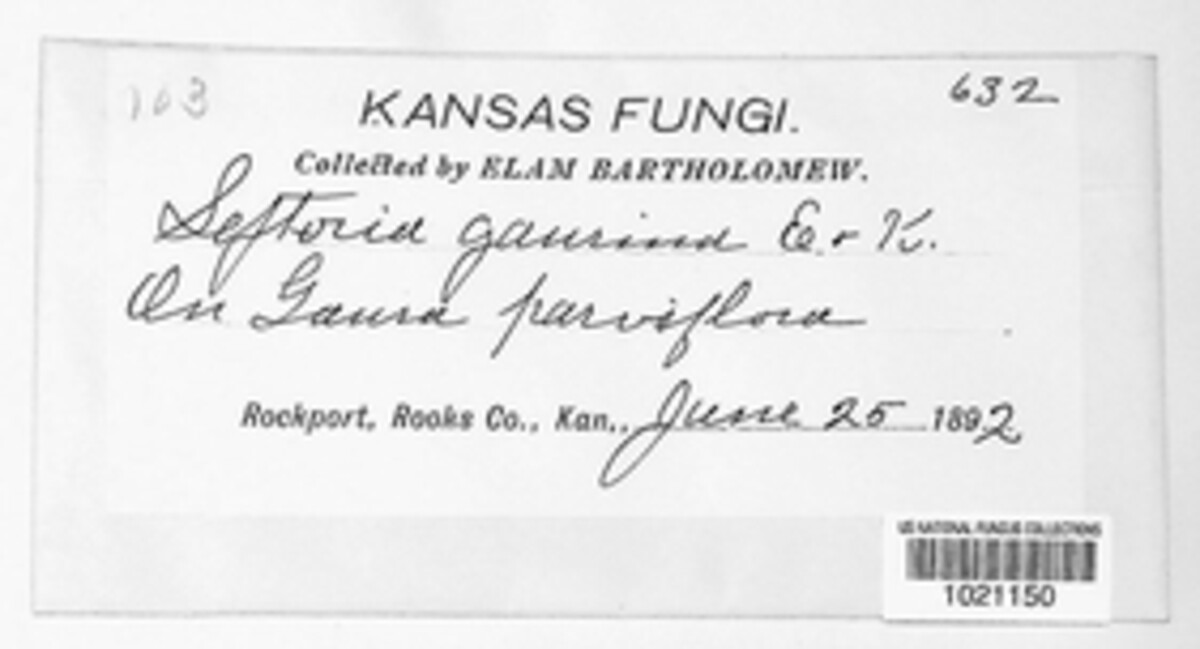 103
632
KANSAS FUNGI.
Collected by ELAM BARTHOLOMEW.
Septoria gaurina E. & K.
On Gaura parviflora
Rockport, Rooks Co., Kan., June 25 1892
US NATIONAL FUNGUS COLLECTIONS
1021150